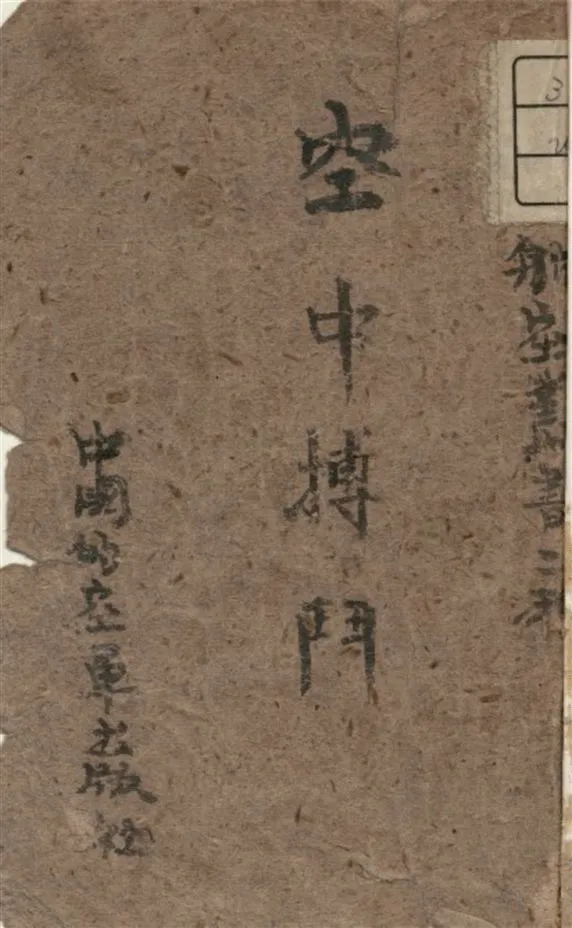 航空叢書之一
空中搏鬥
中國的空軍出版社